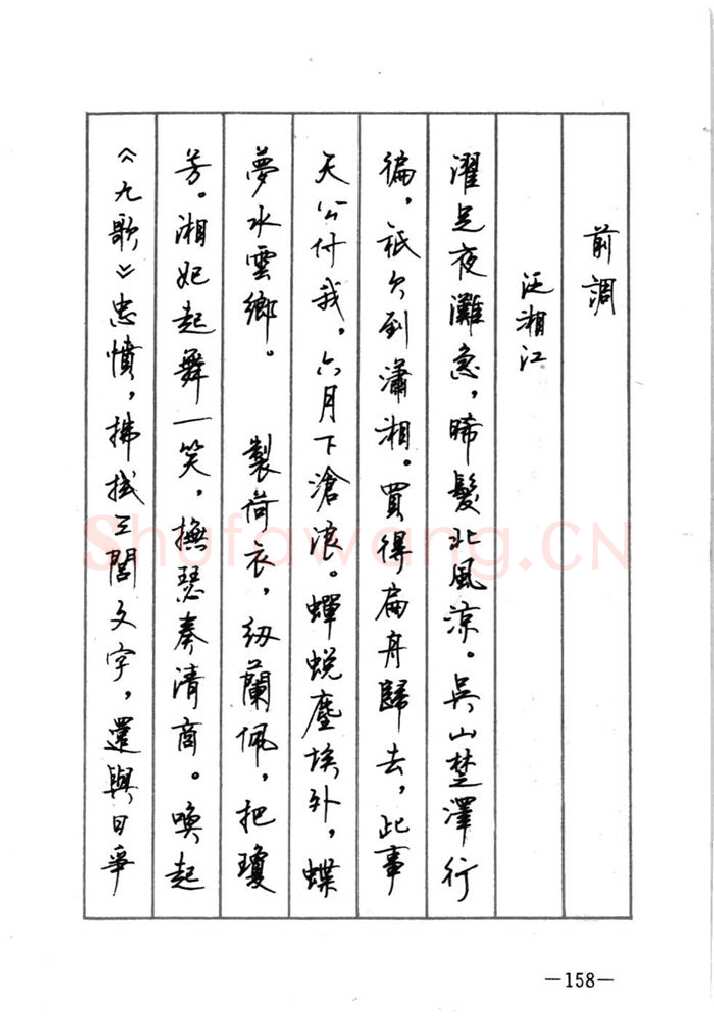 前調
泛湘江
濯足夜灘急，晞髮北風涼。吳山楚澤行
徧，祇欠到瀟湘。買得扁舟歸去，此事
天公付我，六月下滄浪。蟬蛻塵埃外，蝶
夢水雲鄉。　製荷衣，紉蘭佩，把瓊
芳。湘妃起舞一笑，撫瑟奏清商。喚起
《九歌》忠憤，拂拭三閭文字，還與日爭
—158—
Shufawang.CN